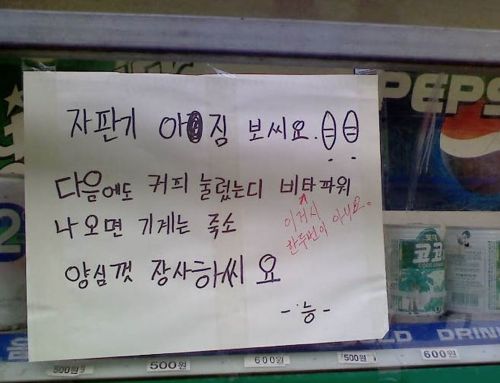 자판기 아짐 보씨요.
다음에도 커피 눌렀는디 비타파워
나오면 기계는 죽소
이거시
한두번이 아니요.
양심껏 장사하씨요
-능-
PEPS
코코
COLD DRINK
500원
500원
600원
500원
600원